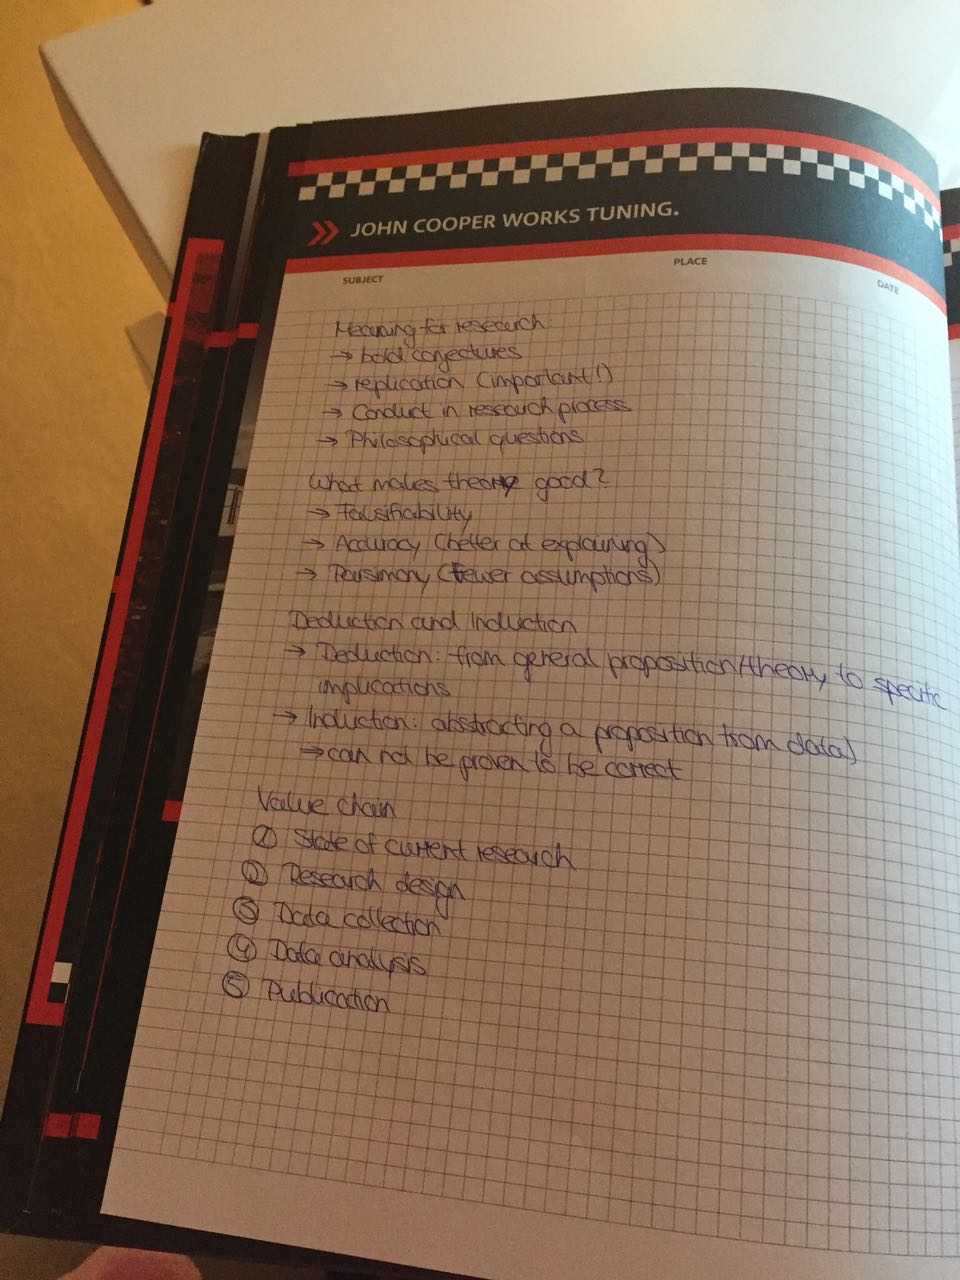 JOHN COOPER WORKS TUNING.
SUBJECT PLACE DATE
Meaning for research:
→ bold conjectures
→ replication (important!)
→ Conduct in research process
→ Philosophical questions
What makes theory good?
→ Falsifiability
→ Accuracy (better at explaining)
→ Parsimony (fewer assumptions)
Deduction and Induction
→ Deduction: from general proposition/theory to specific
implications
→ Induction: abstracting a proposition from data)
→ can not be proven to be correct
Value chain
① State of current research
② Research design
③ Data collection
④ Data analysis
⑤ Publication